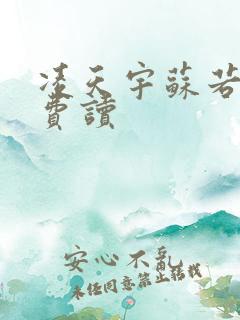 凌天宇蘇若
費讀
安心不亂
未经同意禁止转载